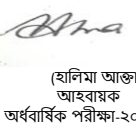 (হালিমা আক্তা
আহবায়ক
অর্ধবার্ষিক পরীক্ষা-২০